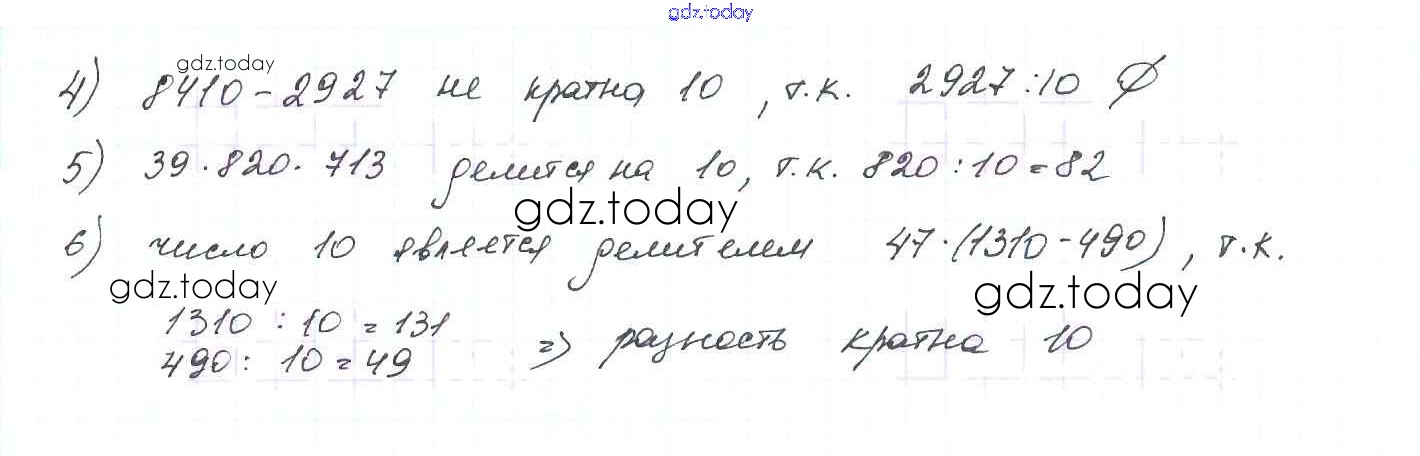 gdz.today
gdz.today
4) 8410 - 2927 не кратна 10, т.к. 2927:10 ∅
5) 39·820·713 делится на 10, т.к. 820:10=82
gdz.today
6) число 10 является делителем 47·(1310-490), т.к.
gdz.today gdz.today
1310:10=131
490:10=49 => разность кратна 10